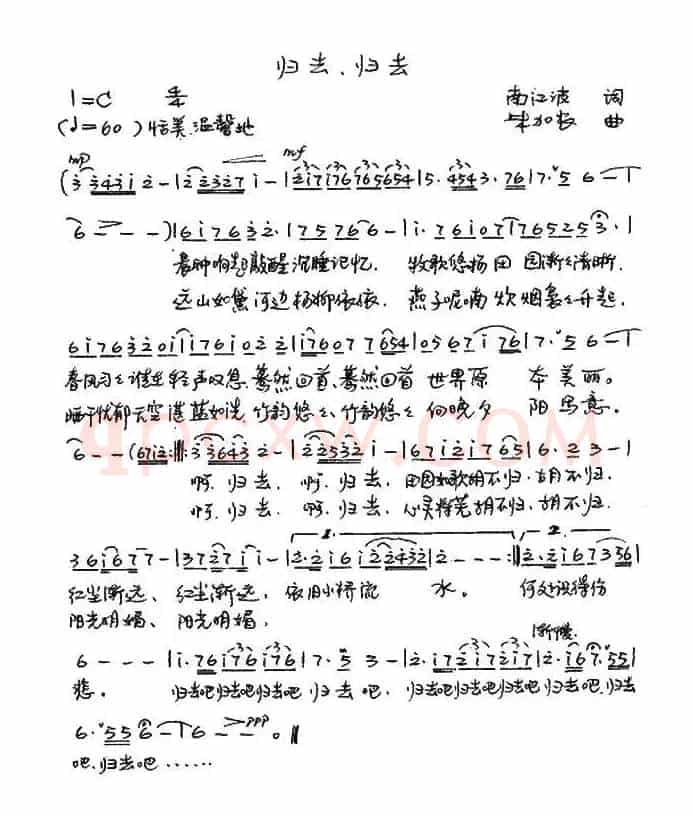 归去、归去
1=C 南江波 词
(♩=60) 恬美温馨地 曲
mp mf
(3 3 4 3 1 2 - | 2 2 3 2 7 1 - |
6 - - - ) | 6 1 7 6 3 2 · | 7 5 7 6 6 - | 1 · 7 6 1 0 7 1 7 6 5 2 5 3 · |
暮钟响起敲醒沉睡记忆. 牧歌悠扬田园渐渐清晰.
远山如黛河边杨柳依依. 燕子呢喃炊烟袅袅升起.
春风习习谁在轻声叹息. 蓦然回首、蓦然回首 世界原本美丽。
晒干忧郁天空湛蓝如洗 竹韵悠悠、竹韵悠悠 向晚夕阳写意。
6 - - (6 7 1 2 :||: 3 3 6 4 3 2 - | 2 2 5 3 2 1 - | 6 6 7 1 2 1 7 6 5 | 6 · 2 3 - |
啊. 归去. 啊. 归去. 田园如歌胡不归. 胡不归.
啊. 归去. 啊. 归去. 心灵将芜胡不归. 胡不归.
1. 2.
3 6 1 6 7 7 - | 3 7 2 7 1 1 - | 2 · 2 1 6 1 2 2 4 3 2 | 2 - - - :|| 2 · 2 1 6 7 3 3 6 |
红尘渐远、红尘渐远, 依旧小桥流水。 何处没得伤
阳光明媚、阳光明媚,
渐慢
6 - - - | 1 · 7 6 1 7 6 1 7 6 | 7 · 5 3 - | 2 · 1 7 2 1 7 2 1 7 | 2 · 1 6 7 · 5 5 |
悲。 归去吧归去吧归去吧. 归去吧, 归去吧归去吧归去吧. 归去吧. 归去
ppp
6 · 5 5 6 - | 6 - - 。||
吧. 归去吧 ……
qpcxw.com